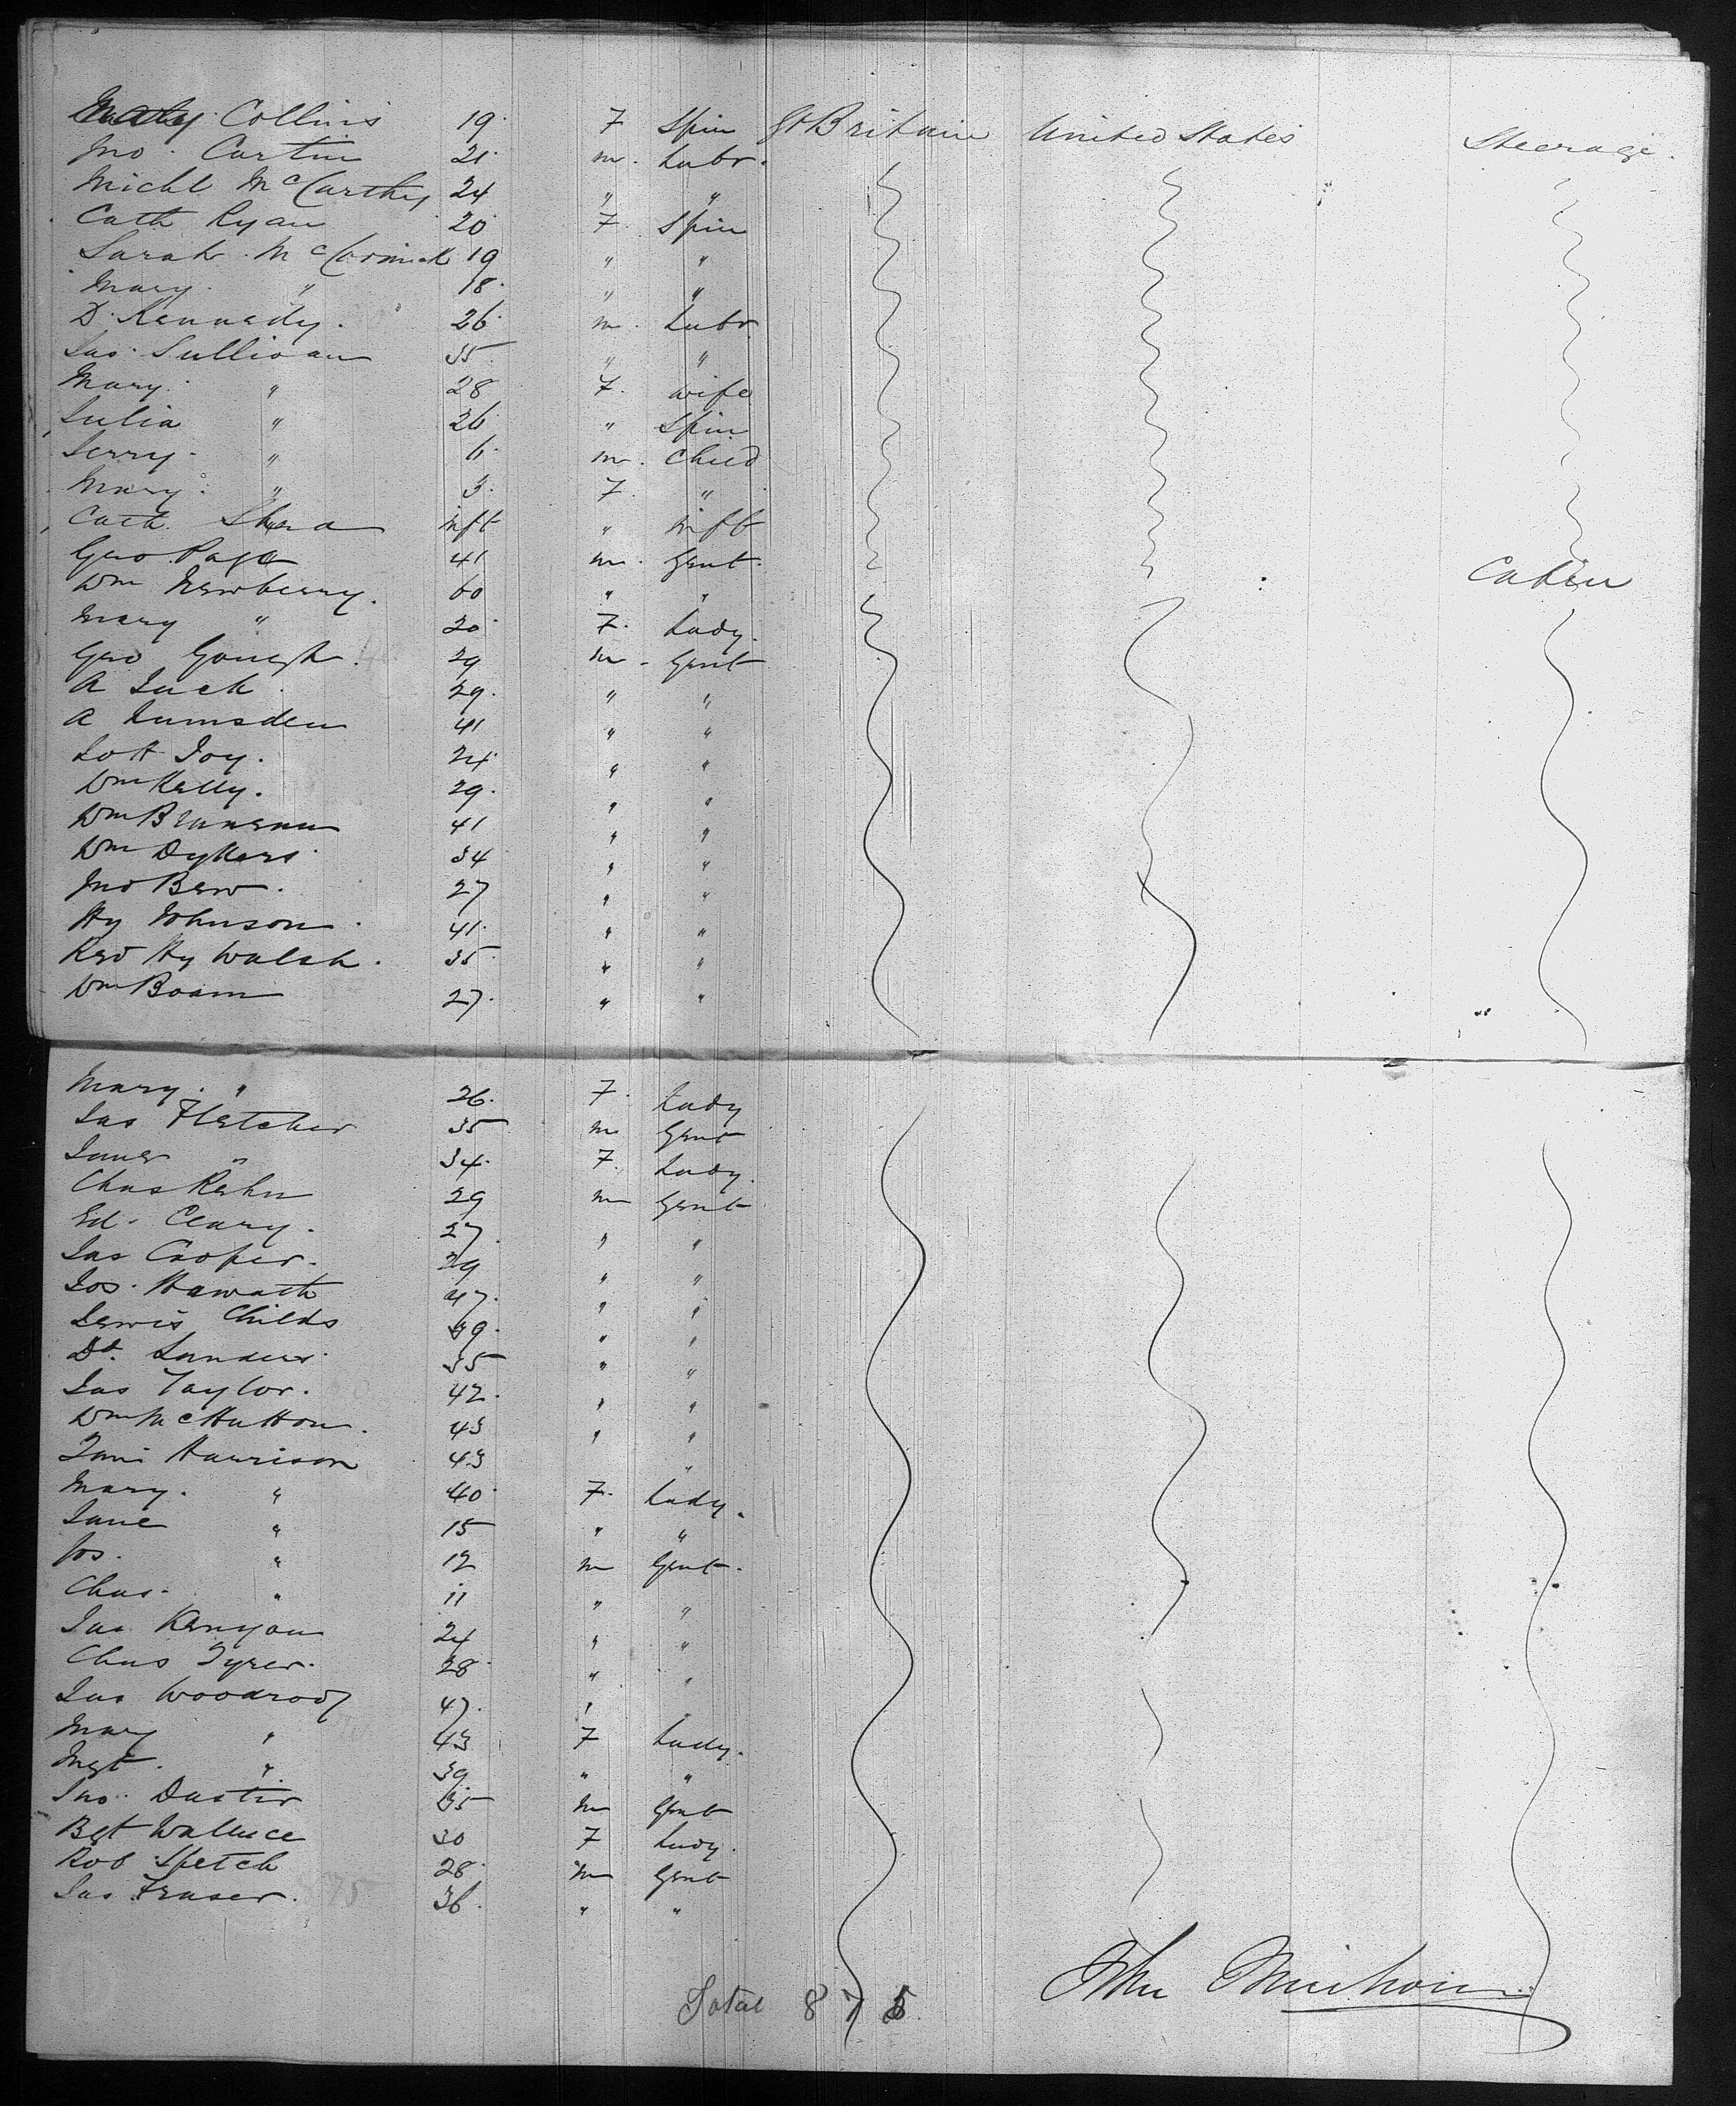 Mary Collins 19 F Spin Gt Britain United States Steerage
Jno. Curtin 21 m. Labr.
Michl McCarthy 24 " "
Cath Ryan 20 F. Spin
Sarah McCormick 19 " "
Mary " 18 " "
D. Kennedy. 26 m. Labr
Jas. Sullivan 35 " "
Mary " 28 F. wife
Julia " 26 " Spin
Jerry " 6 m. Child
Mary " 3 F. "
Cath. Shea inft " inft
Geo Page 41 m. Gent. Cabin
Wm Newberry. 60 " "
Mary " 20 F. Lady.
Geo 29 m. Gent
A Luck 29. " "
A Lumsden 41 " "
Joy. 24 " "
Wm Kelly. 29. " "
Wm 41 " "
Wm Dykers 34 " "
Jno Bew. 27 " "
Hy Johnson 41. " "
Revd Hy Walsh. 35 " "
Wm Boam 27. " "
Mary. " 26. F. Lady
Jas Fletcher 35 m Gent
" 34. F. Lady.
Chas Rehn 29 m Gent
Ed. Cleary. 27. " "
Jas Cooper. 29 " "
Jos. Haworth 47. " "
Lewis Childs 39. " "
Dr. Sanders 35 " "
Jas Taylor. 42. " "
Wm McHutton. 43 " "
Harrison 43 "
Mary. " 40 F. Lady.
Jane " 15 " "
Jos. " 12 m Gent.
Chas. " 11 " "
Jas Kenyon 24 " "
Chas Tyrer. 28 " "
Jas 47. " "
Mary " 43 F Lady.
Mgt. " 39 " "
Jno. 35 m Gent
Bgt Wallace 30 F Lady.
Rob Spetch 28 m Gent
Jas Fraser. 36. " "
Total 875